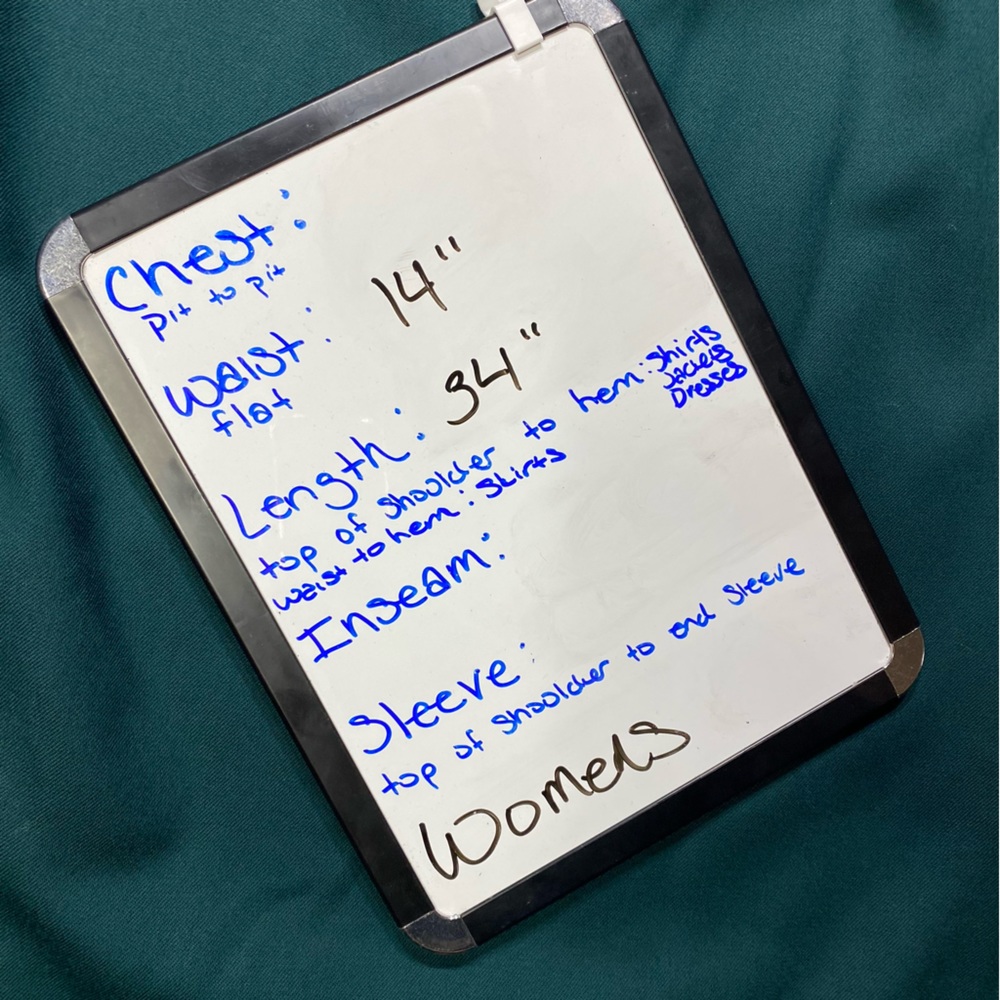 Chest:
pit to pit
Waist: 14"
flat
Length: 34"
top of shoulder to hem: Shirts
Jackets
Dresses
waist to hem: Skirts
Inseam:
Sleeve:
top of shoulder to end sleeve
Womens